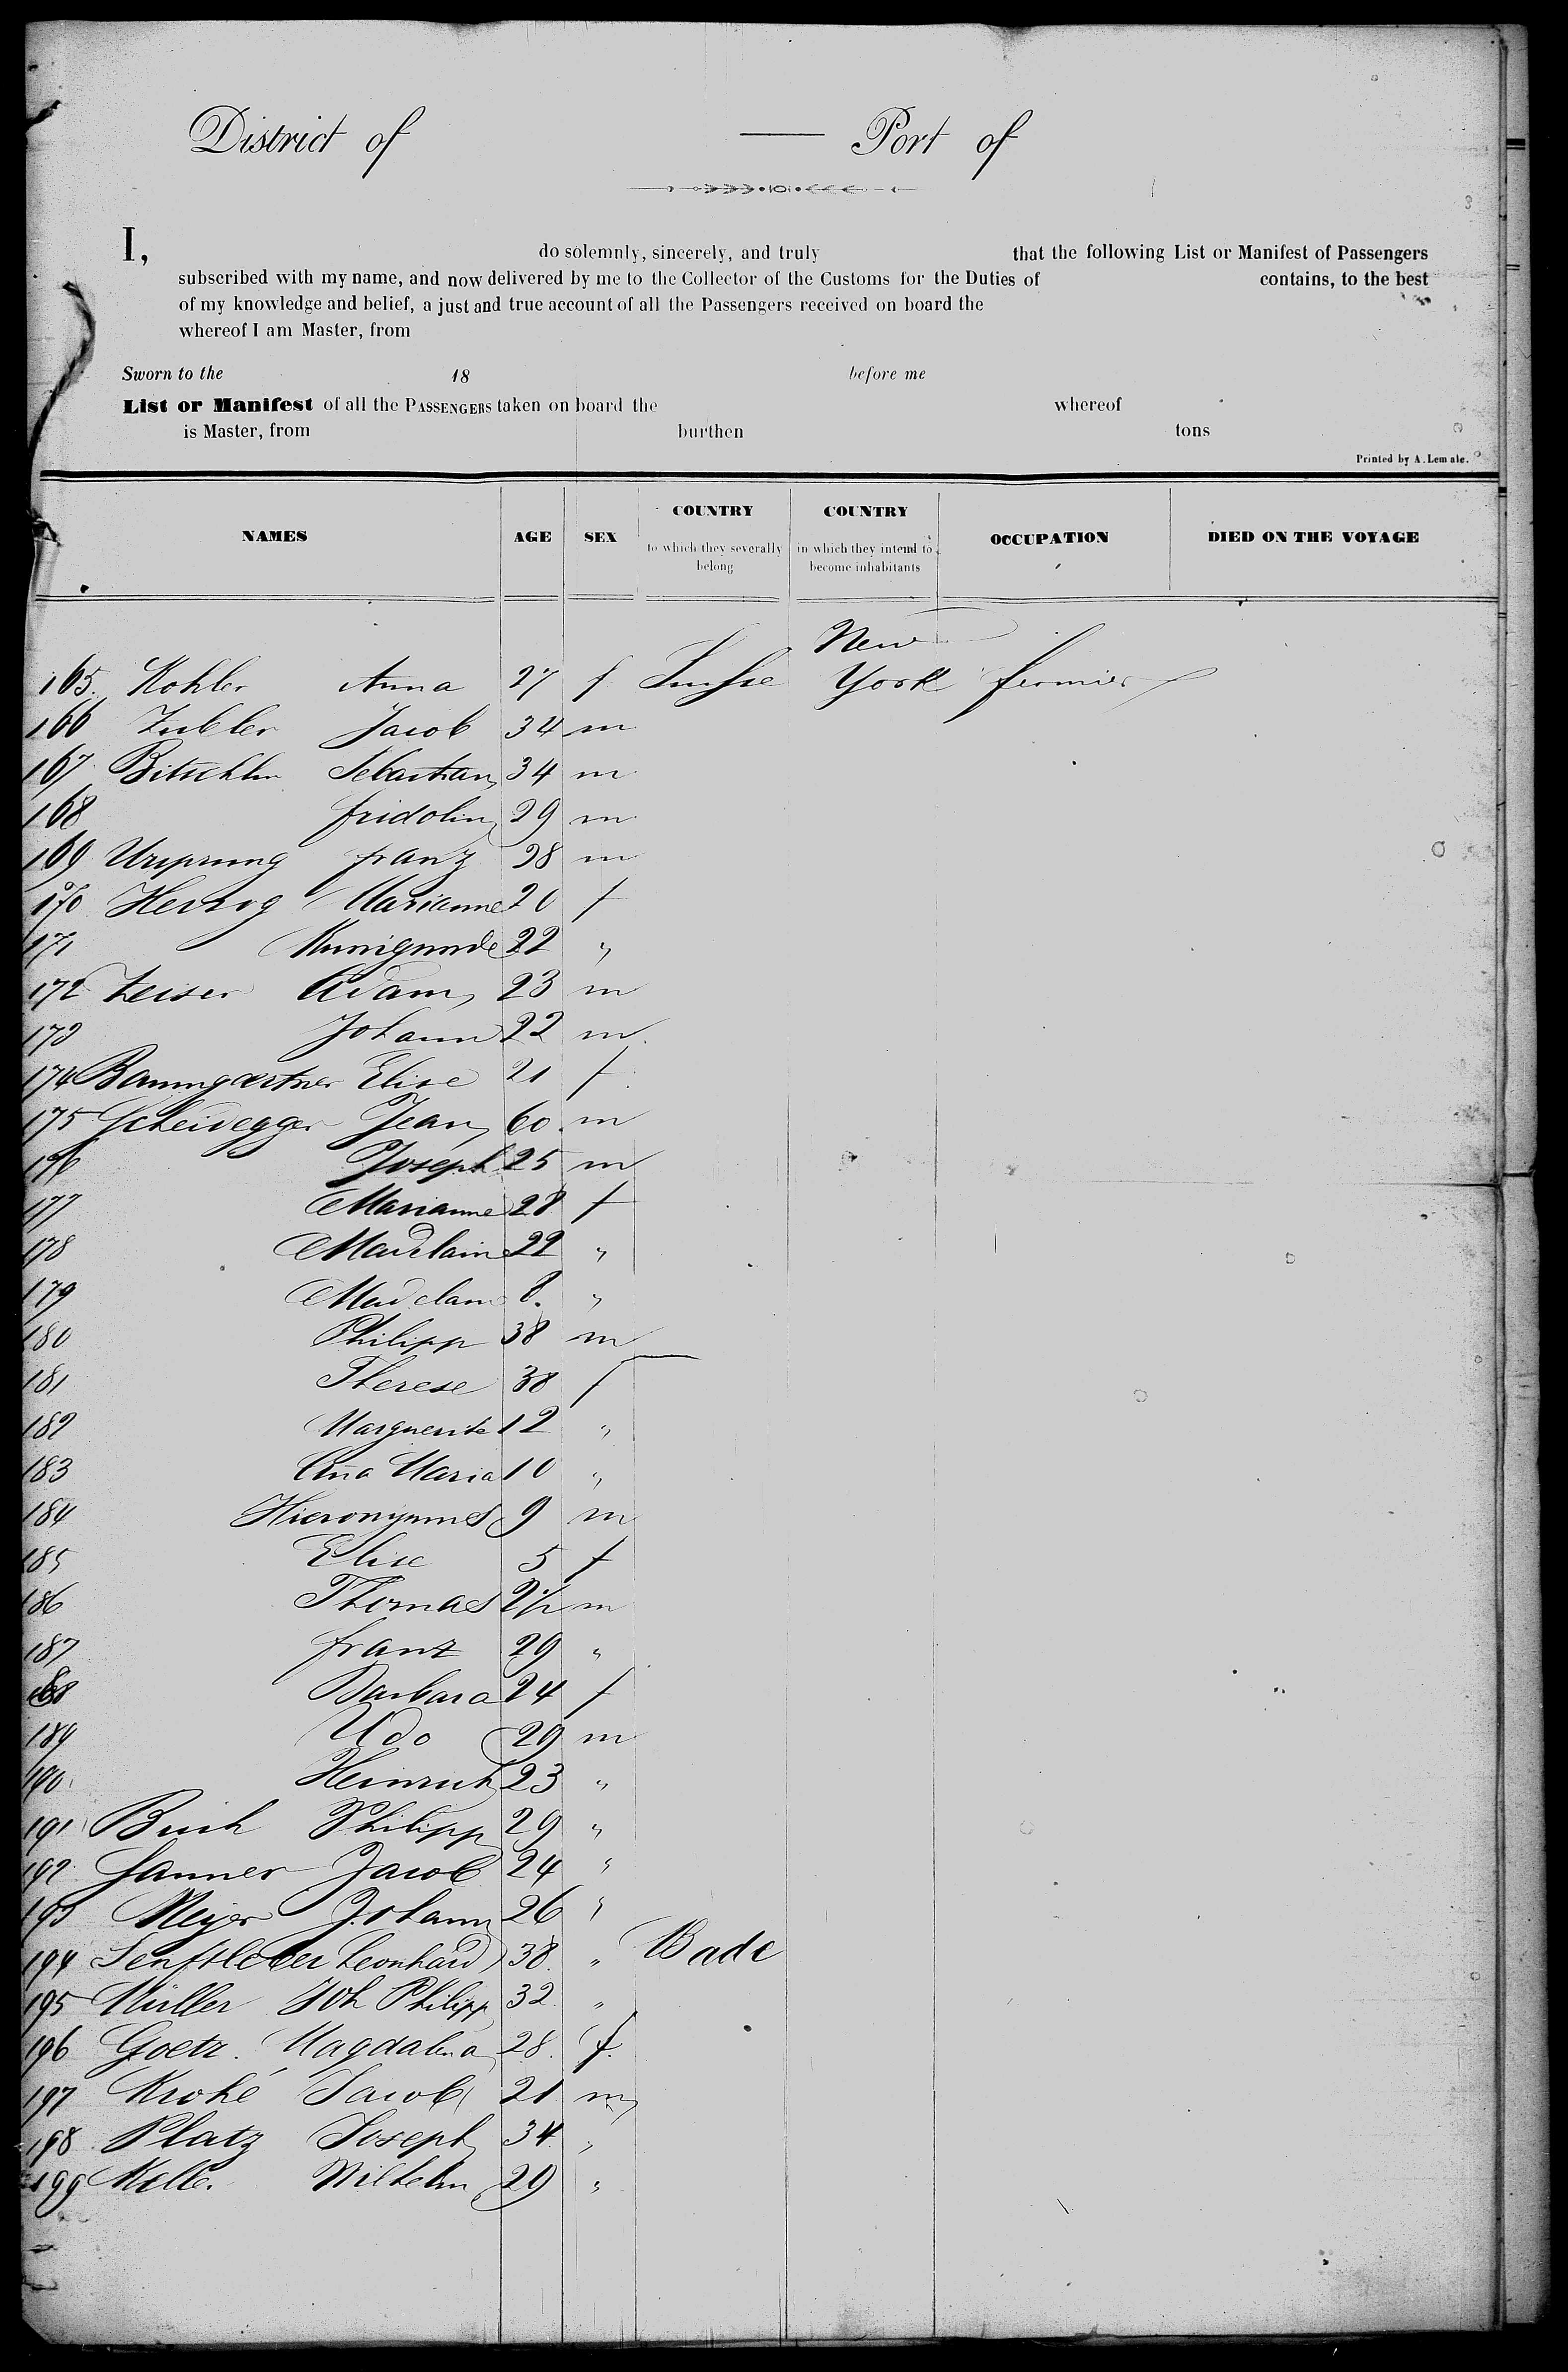 District of — Port of
I, do solemnly, sincerely, and truly that the following List or Manifest of Passengers
subscribed with my name, and now delivered by me to the Collector of the Customs for the Duties of contains, to the best
of my knowledge and belief, a just and true account of all the Passengers received on board the
whereof I am Master, from
Sworn to the 18 before me
List or Manifest of all the PASSENGERS taken on board the whereof
is Master, from burthen tons
Printed by A. Lemale.
NAMES AGE SEX COUNTRY to which they severally belong COUNTRY in which they intend to become inhabitants OCCUPATION DIED ON THE VOYAGE
New
165. Kohler Anna 27 f Suisse York fermier
166 Zubler Jacob 34 m
167 Sebastian 34 m
168 fridolin 29 m
169 Ursprung franz 28 m
170 Herzog Marianne 20 f
171 Kunigunde 22 "
172 Leiser Adam 23 m
173 Johann 22 m
174 Baumgartner Elise 21 f
175 Scheidegger Jean 60 m
176 Joseph 25 m
177 Marianne 28 f
178 Madelaine 22 "
179 Madelain 8. "
180 Philipp 38 m
181 Therese 38 f
182 Marguerite 12 "
183 Aña Maria 10 "
184 Hieronymus 9 m
185 Elise 5 f
186 Thomas 2½ m
187 franz 29 "
188 Barbara 24 f
189 Udo 29 m
190 Heinrich 23 "
191 Philipp 29 "
192 Janner Jacob 24 "
193 Meyer Johann 26 "
194 Senftleber Leonhard 38. " Bade
195 Müller Joh Philipp 32 "
196 Goetz. Magdalena 28. f.
197 Krohé Jacob 21 m
198 Platz Joseph 34 "
199 Wilhelm 29 "